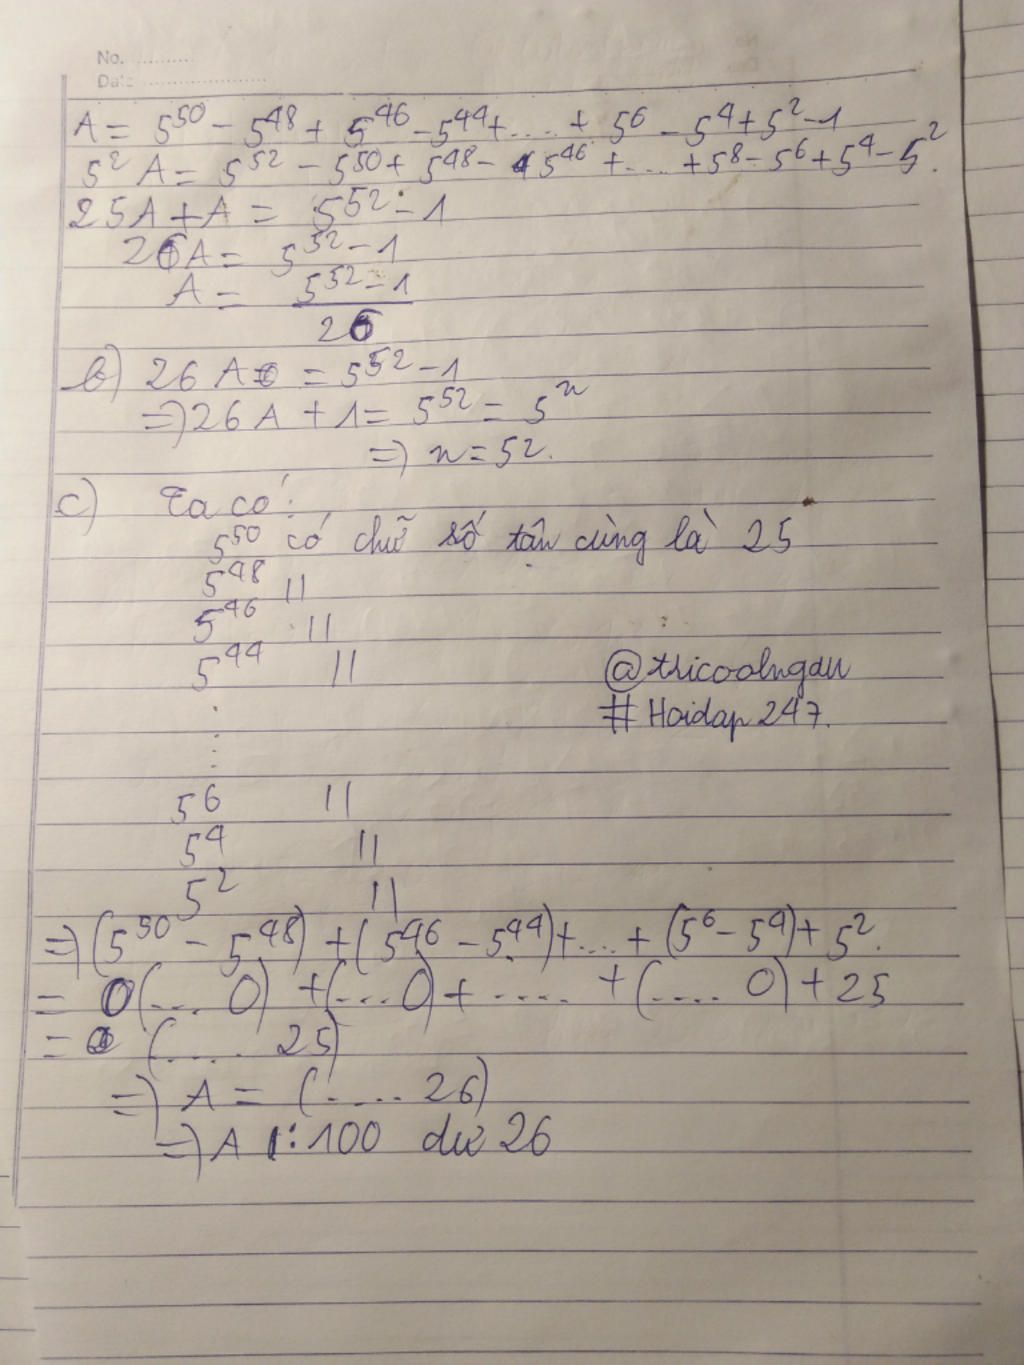 No. ............
Date ......................
A = 5⁵⁰ - 5⁴⁸ + 5⁴⁶ - 5⁴⁴ + .... + 5⁶ - 5⁴ + 5² - 1
5² A = 5⁵² - 5⁵⁰ + 5⁴⁸ - 5⁴⁶ + .... + 5⁸ - 5⁶ + 5⁴ - 5².
25A + A = 5⁵² - 1
26A = 5⁵² - 1
A = 5⁵² - 1
26
b) 26 A = 5⁵² - 1
=> 26 A + 1 = 5⁵² = 5ⁿ
=> n = 52.
c) Ta có:
5⁵⁰ có chữ số tận cùng là 25
5⁴⁸ //
5⁴⁶ //
5⁴⁴ //
@tricoolngau
# Hoidap 247.
.
:
:
5⁶ //
5⁴ //
5² //
=> (5⁵⁰ - 5⁴⁸) + (5⁴⁶ - 5⁴⁴) + ... + (5⁶ - 5⁴) + 5².
= (.... 0) + (....0) + ..... + (.... 0) + 25
= (..... 25)
=> A = (..... 26)
=> A : 100 dư 26